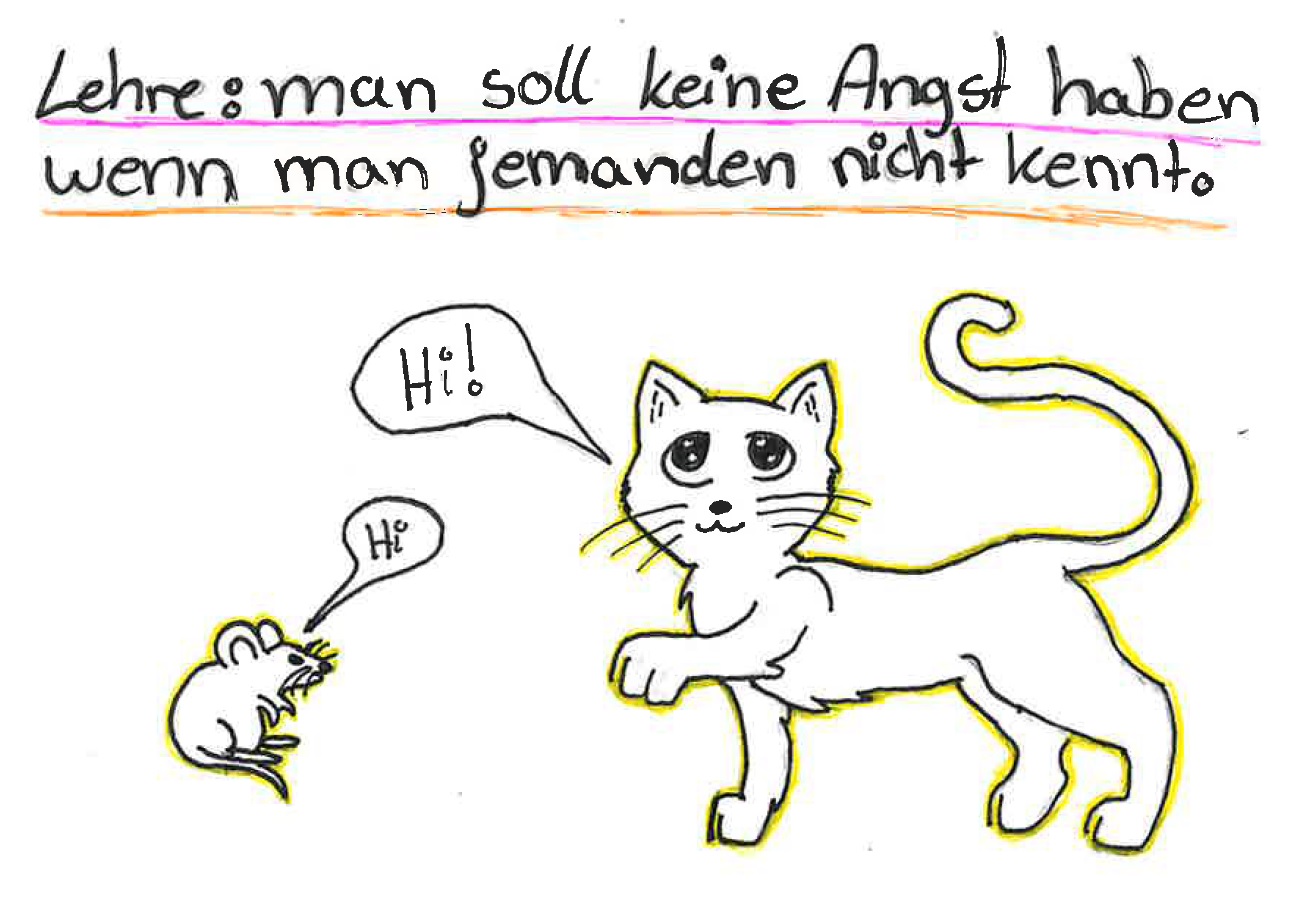 Lehre: man soll keine Angst haben
wenn man jemanden nicht kennt.
Hi!
Hi